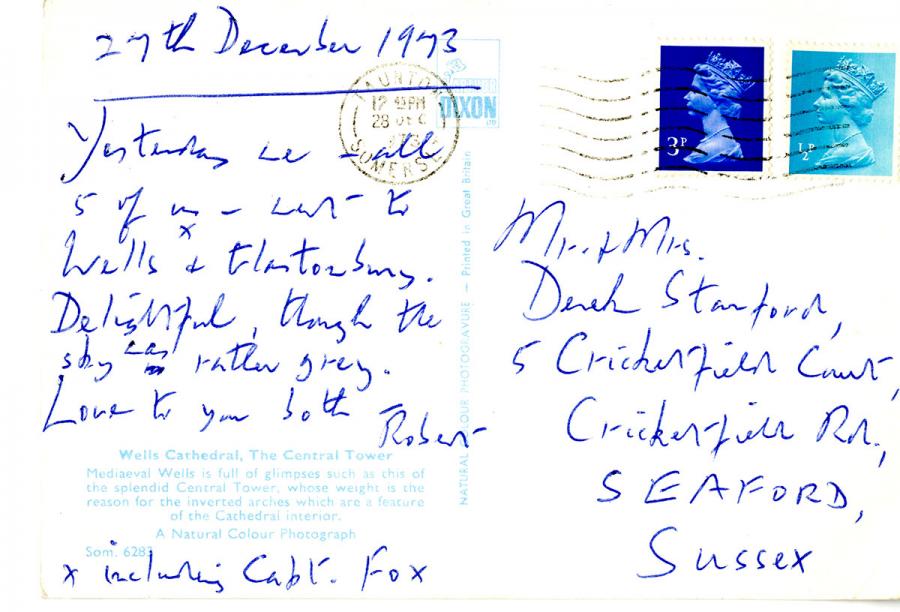 27th December 1973
Yesterday we - all
5 of us - went to
x
Wells & Glastonbury.
Delightful, though the
sky was rather grey.
Love to you both
Robert
Wells Cathedral, The Central Tower
Mediaeval Wells is full of glimpses such as this of
the splendid Central Tower, whose weight is the
reason for the inverted arches which are a feature
of the Cathedral interior.
A Natural Colour Photograph
Som. 6283
x including Capt. Fox
DIXON
NATURAL COLOUR PHOTOGRAVURE — Printed in Great Britain
TAUNTON
12 45 PM
28 DEC
SOMERSET
3P
½P
Mr. & Mrs.
Derek Stanford,
5 Cricketfield Court,
Cricketfield Rd.,
SEAFORD,
Sussex